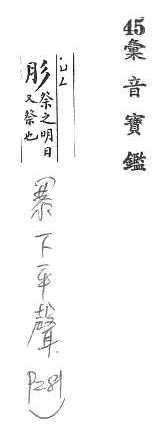 45彙音寶鑑
肜 祭之明日
又祭也
下平聲 P281)